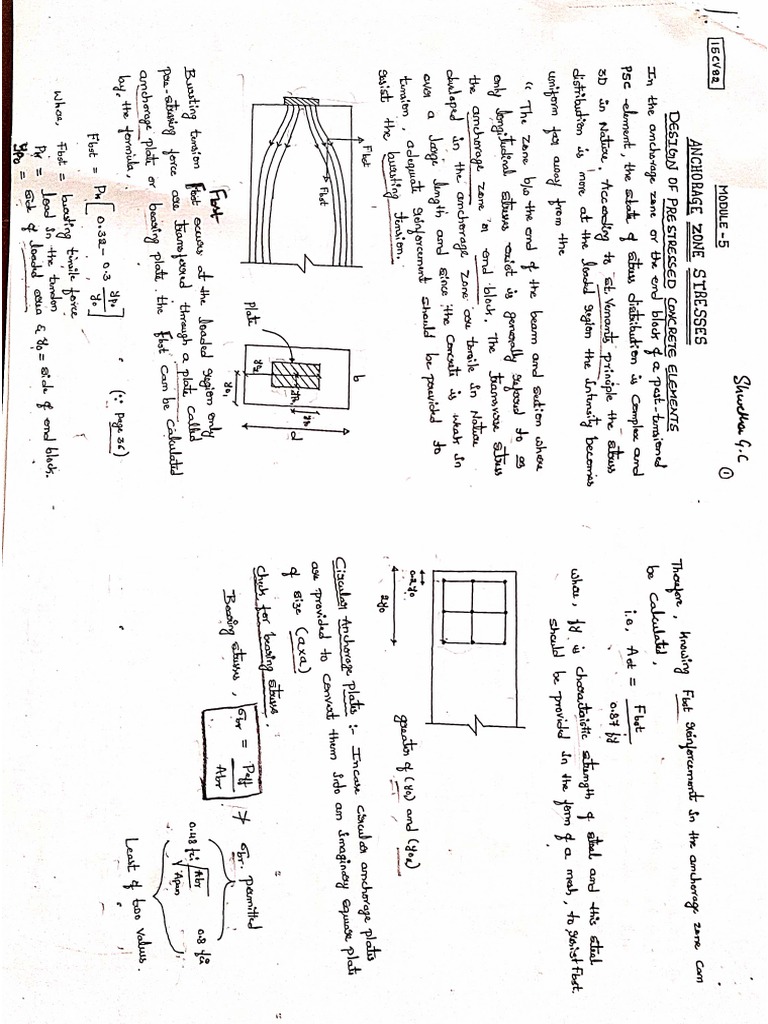 15CV82
MODULE-5
Shwetha G.C
①
ANCHORAGE ZONE STRESSES
DESIGN OF PRESTRESSED CONCRETE ELEMENTS
In the anchorage zone or the end block of a post-tensioned
PSC element, the state of stress distribution is complex and
3D in Nature. According to st. Venants principle the stress
distribution is more at the loaded region the intensity becomes
uniform far away from the
"The zone b/w the end of the beam and section where
only longitudinal stresses exist is generally refered to as
the anchorage zone or end block. The transverse stress
developed in the anchorage zone are tensile in Nature
over a large length and since the concrete is weak in
tension, adequate reinforcement should be provided to
resist the bursting tension.
Fbst
Fbst
plate
b
d
Fbst
Bursting tension Fbst occurs at the loaded region only
pre-stressing force are transferred through a plate called
anchorage plate or bearing plate. the Fbst can be calculated
by, the formula,
Fbst = Pk [0.32 - 0.3 ypo/yo] (∵ Page 36)
where, Fbst = bursting tensile force
Pk = load in the tendon
ypo = side of loaded area & yo = side of end block.
Therefore, knowing Fbst reinforcement in the anchorage zone can
be calculated,
i.e, Ast = Fbst / 0.87 fy
where, fy is characteristic strength of steel and this steel
should be provided in the form of a mesh, to resist Fbst.
0.2yo
2yo
greater of (yo) and
Circular Anchorage plates :- Incase circular anchorage plates
are provided to convert them into an imaginary square plate
of size (axa)
check for bearing stress.
Bearing stress, σbr = Peff / Abr ≯ σbr. permitted
0.48 fci √(Abr/Apun) 0.8 fci
Least of two values.